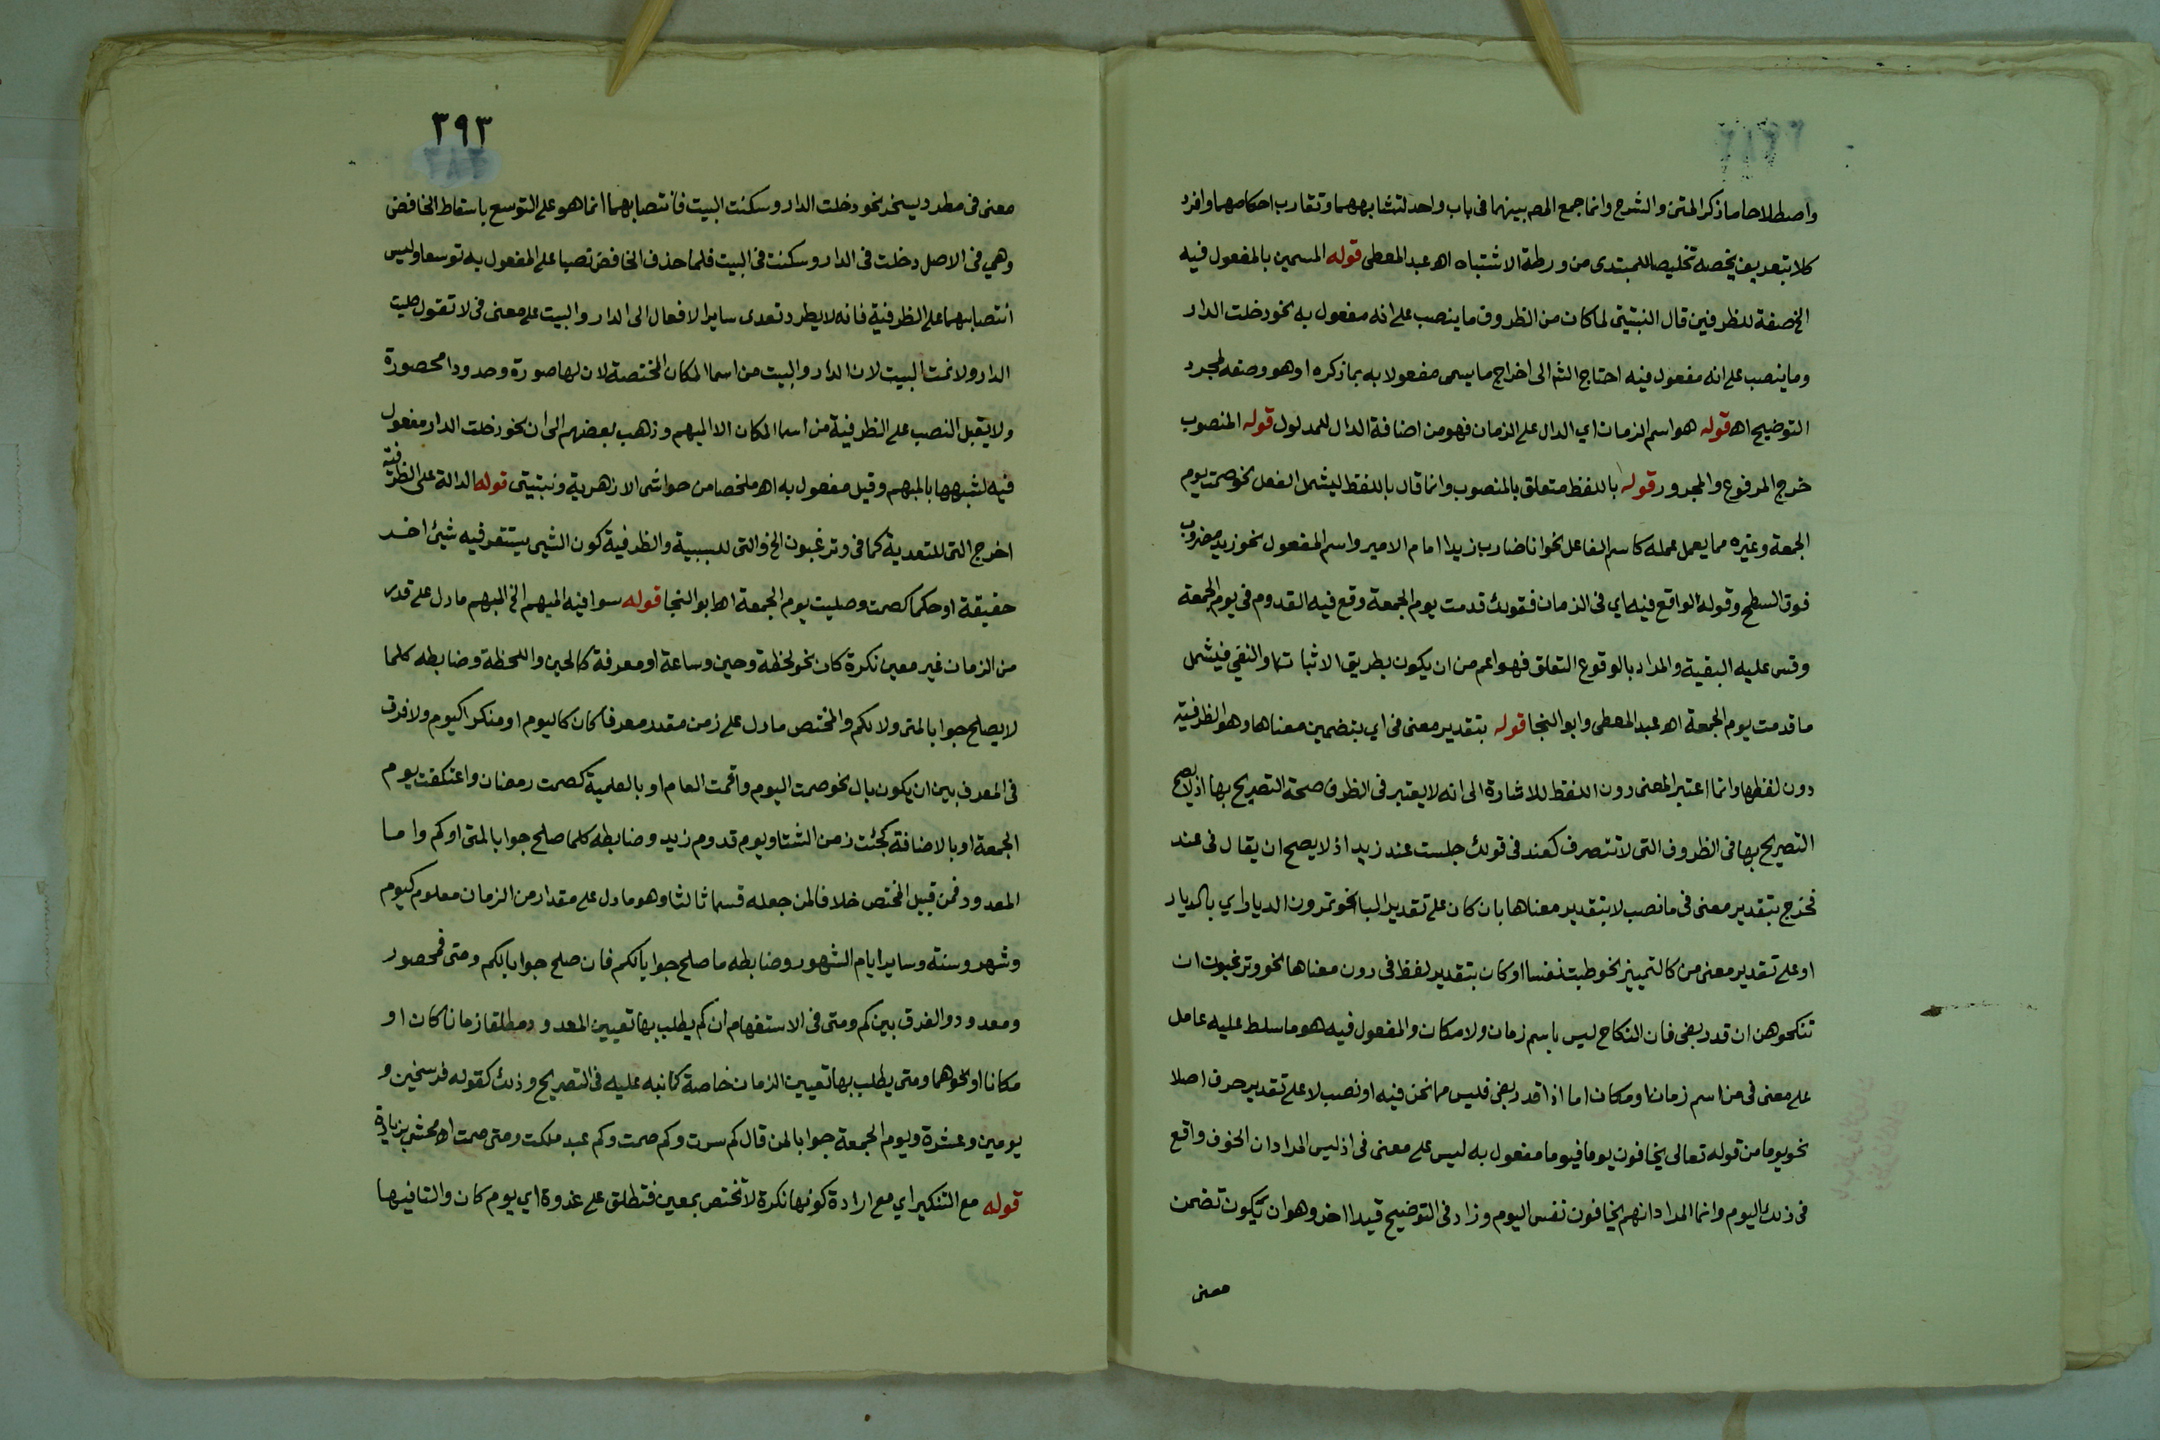 واصطلاحا ما ذكر المتن والشرح وانما جمع المص بينهما فى باب واحد لتشابههما وتقارب احكامهما وافرد
كلا بتعريف يخصه تخليصا للمبتدى من ورطة الاشتباه اه عبد المعطى قوله المسمين بالمفعول فيه
الخ صفة للظرفين قال النبتيتى لما كان من الظروف ما ينصب على انه مفعول به نحو دخلت الدار
وما ينصب على انه مفعول فيه احتاج الش الى اخراج ما يسمى مفعولا به بما ذكره او هو وصفه لمجرد
التوضيح اه قوله هو اسم الزمان اي الدال على الزمان فهو من اضافة الدال للمدلول قوله المنصوب
خرج المرفوع والمجرور قوله باللفظ متعلق بالمنصوب وانما قال باللفظ ليشمل الفعل نحو صمت يوم
الجمعة وغيره مما يعمل عمله كاسم الفاعل نحو انا ضارب زيدا امام الامير واسم المفعول نحو زيد مضروب
فوق السطح وقوله الواقع فيه اي فى الزمان فقولك قدمت يوم الجمعة وقع فيه القدوم فى يوم الجمعة
وقس عليه البقية والمراد بالوقوع التعلق فهو اعم من ان يكون بطريق الاثبات او النفي فيشمل
ما قدمت يوم الجمعة اه عبد المعطى وابو النجا قوله بتقدير معنى فى اي بتضمين معناها وهو الظرفية
دون لفظها وانما اعتبر المعنى دون اللفظ للاشارة الى انه لا يعتبر فى الظرف صحة التصريح بها اذ لا يصح
التصريح بها فى الظروف التى لا تتصرف كعند فى قولك جلست عند زيد اذ لا يصح ان يقال فى عند
فخرج بتقدير معنى فى ما نصب لا بتقدير معناها بان كان على تقدير البا نحو تمرون الديار اي بالديار
او على تقدير معنى من كالتمييز نحو طبت نفسا او كان بتقدير لفظ فى دون معناها نحو وترغبون ان
تنكحوهن ان قدر بفى فان النكاح ليس باسم زمان ولا مكان والمفعول فيه هو ما سلط عليه عامل
على معنى فى من اسم زمان او مكان اما اذا قدر بفى فليس مما نحن فيه او نصب لا على تقدير حرف اصلا
نحو يوما من قوله تعالى يخافون يوما فيوما مفعول به ليس على معنى فى اذ ليس المراد ان الخوف واقع
فى ذلك اليوم وانما المراد انهم يخافون نفس اليوم وزاد فى التوضيح قيدا اخر وهو ان يكون تضمن
معنى
٣٩٣
معنى فى مطرد يخرج نحو دخلت الدار وسكنت البيت فانتصابهما انما هو على التوسع باسقاط الخافض
وهي فى الاصل دخلت فى الدار وسكنت فى البيت فلما حذف الخافض نصبا على المفعول به توسعا وليس
انتصابهما على الظرفية فانه لا يطرد تعدى ساير الافعال الى الدار والبيت على معنى فى لا تقول صليت
الدار ولا نمت البيت لان الدار والبيت من اسما المكان المختصة لان لها صورة وحدودا محصورة
ولا يقبل النصب على الظرفية من اسما المكان الا المبهم وذهب بعضهم الى ان نحو دخلت الدار مفعول
فيه لشبهها بالمبهم وقيل مفعول به اه ملخصا من حواشى الازهرية ونبتيتى قوله الدالة على الظرفية
اخرج التى للتعدية كما فى وترغبون الخ والتى للسببية والظرفية كون الشيء يستقر فيه شيئ اخر
حقيقة او حكما كصمت وصليت يوم الجمعة اه ابو النجا قوله سوا فيه المبهم الخ المبهم ما دل على قدر
من الزمان غير معين نكرة كان نحو لحظة وحين وساعة او معرفة كالحين واللحظة وضابطه كلما
لا يصلح جوابا لمتى ولا لكم والمختص ما دل على زمن مقدر معرفا كان كاليوم او منكرا كيوم ولا فرق
فى المعرف بين ان يكون بال نحو صمت اليوم واقمت العام او بالعلمية كصمت رمضان واعتكفت يوم
الجمعة او بالاضافة كجئت زمن الشتا ويوم قدوم زيد وضابطه كلما صلح جوابا لمتى او كم واما
المعدود فمن قبيل المختص خلافا لمن جعله قسما ثالثا وهو ما دل على مقدار من الزمان معلوم كيوم
وشهر وسنة وساير ايام الشهور وضابطه ما صلح جوابا لكم فان صلح جوابا لكم ومتى فمحصور
ومعدود والفرق بين كم ومتى فى الاستفهام ان كم يطلب بها تعيين المعدود مطلقا زمانا كان او
مكانا او نحوهما ومتى يطلب بها تعيين الزمان خاصة كما نبه عليه فى التصريح وذلك كقوله فرسخين و
يومين وعشرة ويوم الجمعة جوابا لمن قال كم سرت وكم صمت وكم عبد ملكت ومتى صمت اه محشى بزيادة
قوله مع التنكير اي مع ارادة كونها نكرة لا تختص بمعين فتطلق على غدوة اي يوم كان والتا فيها